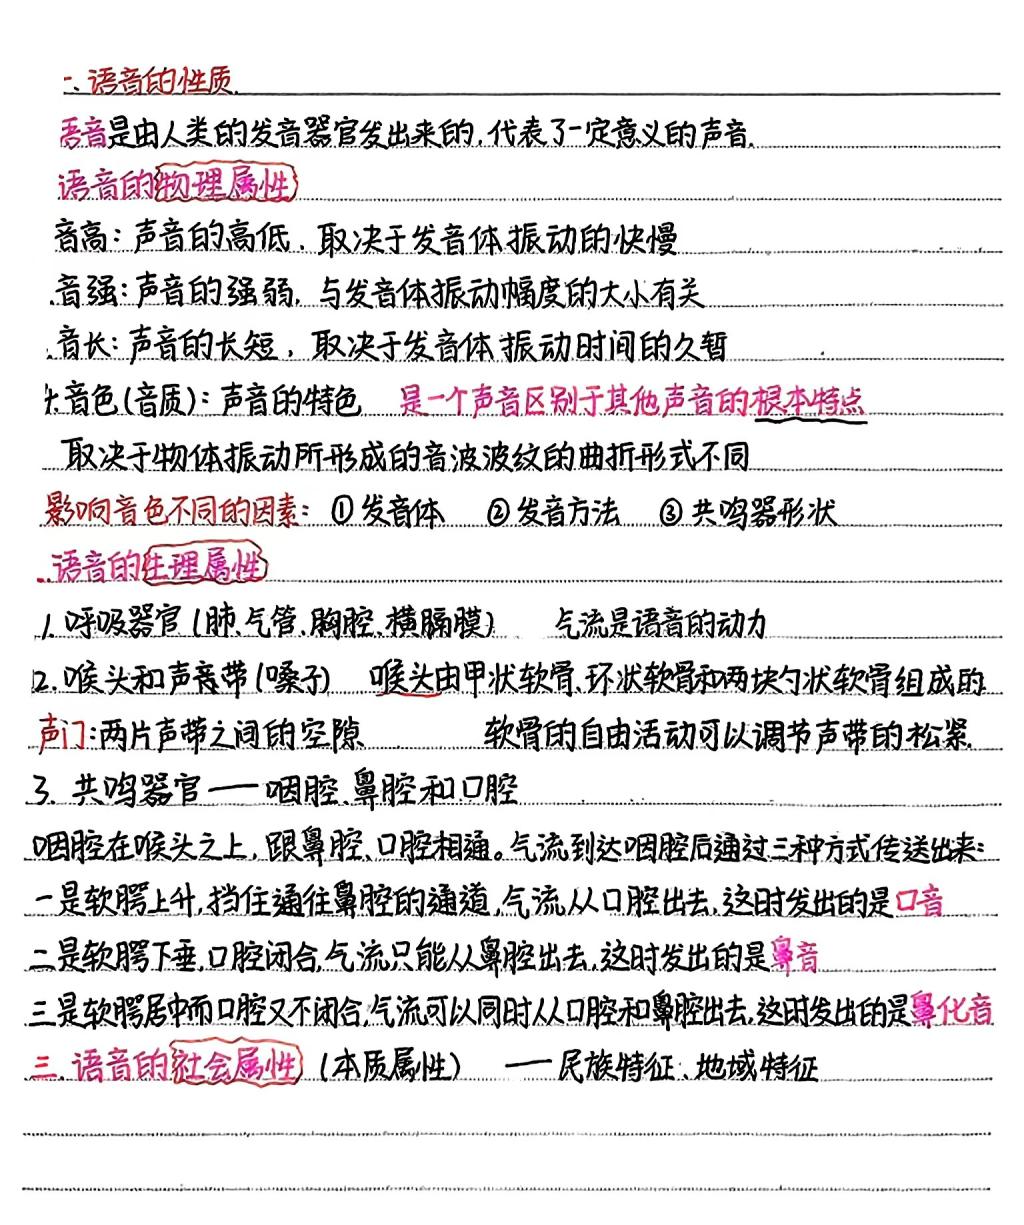 一、语音的性质
语音是由人类的发音器官发出来的,代表了一定意义的声音.
语音的物理属性
音高:声音的高低.取决于发音体振动的快慢
音强:声音的强弱,与发音体振动幅度的大小有关
音长:声音的长短,取决于发音体振动时间的久暂
音色(音质):声音的特色 是一个声音区别于其他声音的根本特点
取决于物体振动所形成的音波波纹的曲折形式不同
影响音色不同的因素: ①发音体 ②发音方法 ③共鸣器形状
语音的生理属性
1.呼吸器官(肺、气管、胸腔、横膈膜) 气流是语音的动力
2.喉头和声音带(嗓子) 喉头由甲状软骨、环状软骨和两块勺状软骨组成的
声门:两片声带之间的空隙 软骨的自由活动可以调节声带的松紧.
3. 共鸣器官——咽腔、鼻腔和口腔
咽腔在喉头之上,跟鼻腔、口腔相通。气流到达咽腔后通过三种方式传送出来:
一是软腭上升,挡住通往鼻腔的通道,气流从口腔出去,这时发出的是口音
二是软腭下垂,口腔闭合,气流只能从鼻腔出去,这时发出的是鼻音
三是软腭居中而口腔又不闭合,气流可以同时从口腔和鼻腔出去,这时发出的是鼻化音
三、语音的社会属性(本质属性) ——民族特征、地域特征